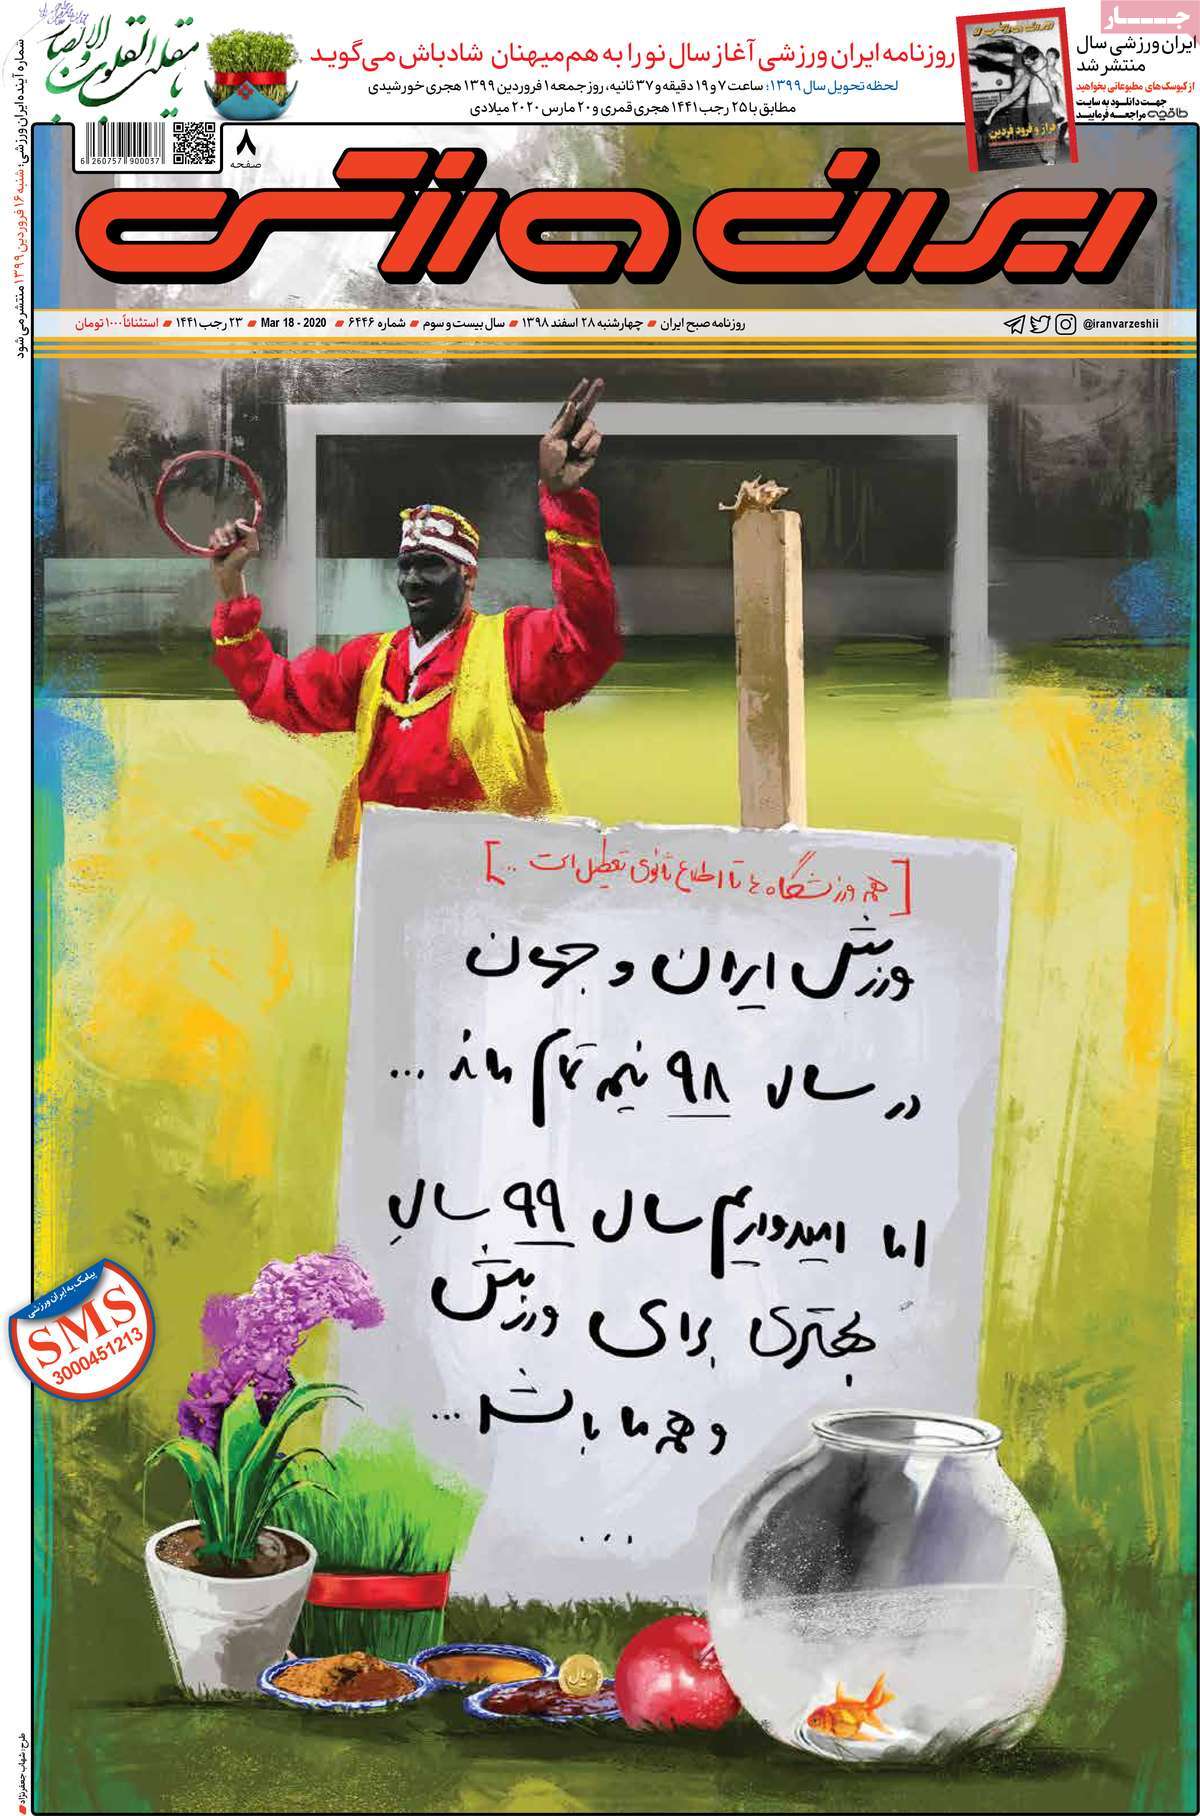 جــــار
ایران ورزشی سال
منتشر شد
از کیوسک‌های مطبوعاتی بخواهید
جهت دانلود به سایت
طاقچه مراجعه فرمایید
فراز و فرود فردین
روزنامه ایران ورزشی آغاز سال نو را به هم‌میهنان شادباش می‌گوید
لحظه تحویل سال ۱۳۹۹: ساعت ۷ و ۱۹ دقیقه و ۳۷ ثانیه، روز جمعه ۱ فروردین ۱۳۹۹ هجری خورشیدی
مطابق با ۲۵ رجب ۱۴۴۱ هجری قمری و ۲۰ مارس ۲۰۲۰ میلادی
یا مقلب القلوب و الابصار
۸
صفحه
6 260757 900037
شماره آینده ایران ورزشی؛ شنبه ۱۶ فروردین ۱۳۹۹ منتشر می‌شود
ایران ورزشی
@iranvarzeshii
روزنامه صبح ایران ■ چهارشنبه ۲۸ اسفند ۱۳۹۸ ■ سال بیست و سوم ■ شماره ۶۴۴۶ ■ Mar 18 - 2020 ■ ۲۳ رجب ۱۴۴۱ ■ استثنائاً ۱۰۰۰ تومان
[همه ورزشگاه ها تا اطلاع ثانوی تعطیل است ...]
ورزش ایران و جهان
در سال ۹۸ نیمه تمام ماند ...
اما امیدواریم سال ۹۹ سالِ
بهتری برای ورزش
و همه ما باشد ...
...
پیامک به ایران ورزشی
SMS
3000451213
ریال
طرح: شهاب جعفرنژاد